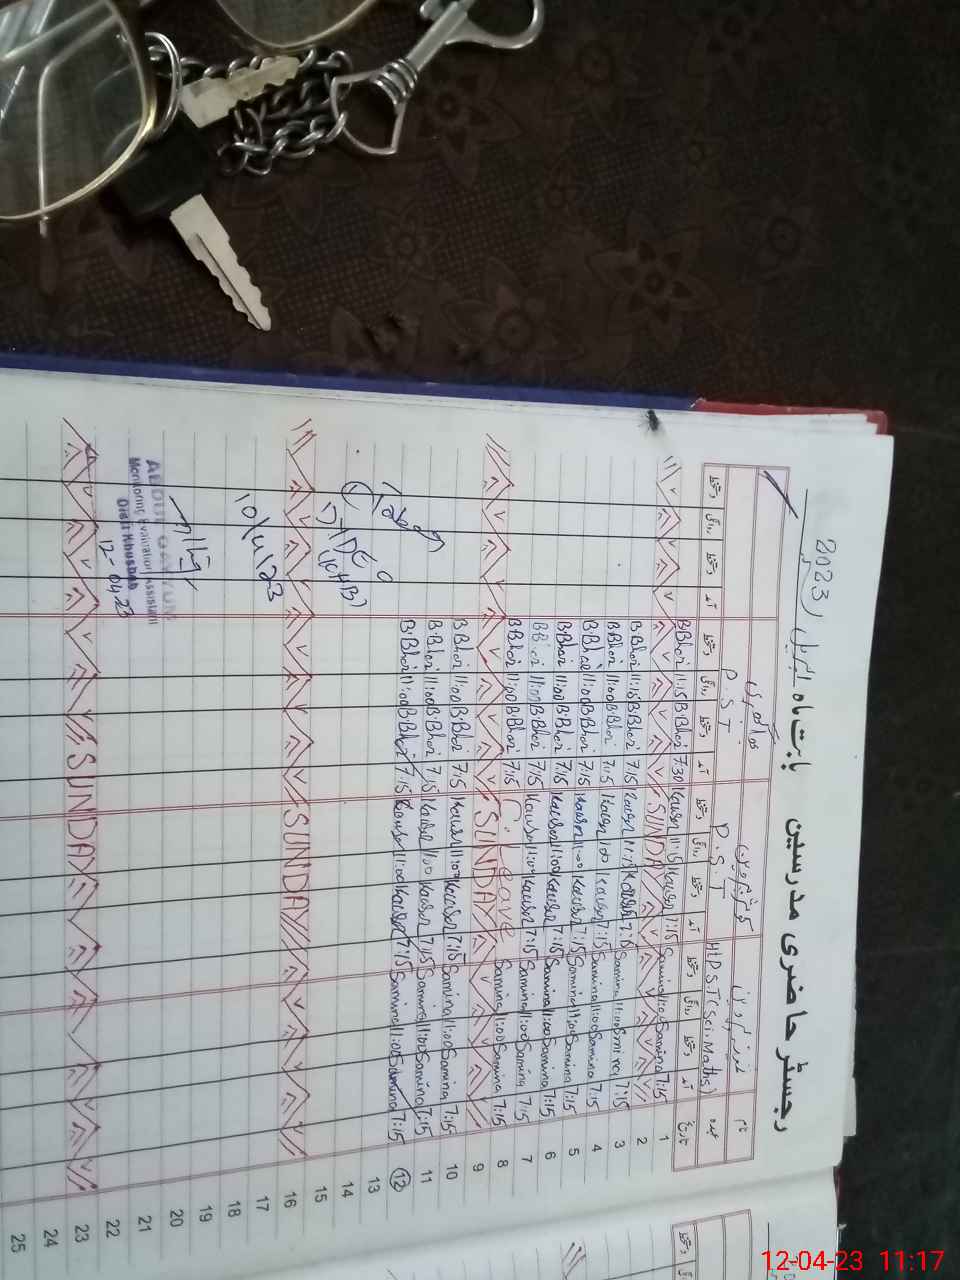 رجسٹر حاضری مدرسین بابت ماہ اپریل 2023
نام
عہدہ H P.S.T (Sci. Maths) P.S.T P.S.T
تاریخ آمد دستخط روانگی دستخط آمد دستخط روانگی دستخط آمد دستخط روانگی دستخط آمد دستخط روانگی دستخط
1 7:15 Samina 11:00 Samina 7:15 Kausar 11:15 Kausar 7:30 B.Bhar 11:15 B.Bhar
2 SUNDAY
3 7:15 Samina 11:00 Samina 7:15 Kausar 11:15 Kausar 7:15 B.Bhar 11:15 B.Bhar
4 7:15 Samina 11:00 Samina 7:15 Kausar 11:00 Kausar 7:15 B.Bhar 11:00 B.Bhar
5 7:15 Samina 11:00 Samina 7:15 Kausar 11:00 Kausar 7:15 B.Bhar 11:00 B.Bhar
6 7:15 Samina 11:00 Samina 7:15 Kausar 11:00 Kausar 7:15 B.Bhar 11:00 B.Bhar
7 7:15 Samina 11:00 Samina 7:15 Kausar 11:00 Kausar 7:15 B.Bhar 11:00 B.Bhar
8 7:15 Samina 11:00 Samina C. Leave 7:15 B.Bhar 11:00 B.Bhar
9 SUNDAY
10 7:15 Samina 11:00 Samina 7:15 Kausar 11:00 Kausar 7:15 B.Bhar 11:00 B.Bhar
11 7:15 Samina 11:00 Samina 7:15 Kausar 11:00 Kausar 7:15 B.Bhar 11:00 B.Bhar
12 7:15 Samina 11:00 Samina 7:15 Kausar 11:00 Kausar 7:15 B.Bhar 11:00 B.Bhar
13
14
15
16 SUNDAY
17
18
19
20
21
22
23 SUNDAY
24
25
(KHB)
10/4/23
ABDUL QAYYUM
Monitoring Evaluation Assistant
Distt Khushab
12-04-23
دستخط
12-04-23 11:17